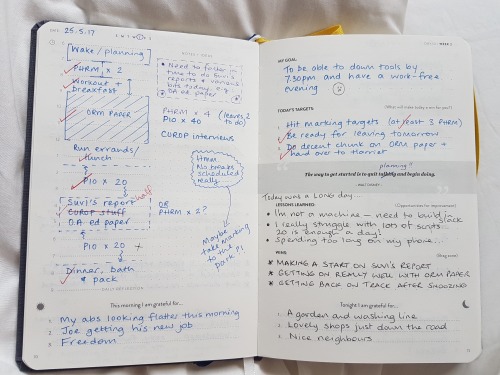 DATE 25.5.17
[Wake / planning]
PHRM x 2
Workout +
breakfast
ORM PAPER
Run errands /
lunch
PIO x 20
Suvi's report half
CUROP stuff
O.A ed paper
PIO x 20
Dinner, bath
+ pack
* Need to factor in
time to do Suvi's
reports + various
bits today, e.g
OA ed paper
PHRM x 4 (leaves 2
to do)
PIO x 40
CUROP interviews
Hmm.
No breaks
scheduled
really
OR
PHRM x 2?
Maybe
take marking
to the
park?!
This morning I am grateful for...
1. My abs looking flatter this morning
2. Joe getting his new job
3. Freedom
MY GOAL:
To be able to down tools by
7:30pm and have a work-free
evening
TODAY'S TARGETS
(What will make today a win for you?)
1. Hit marking targets (at least 3 PHRM)
2. Be ready for leaving tomorrow
3. Do decent chunk on ORM paper +
hand over to Harriet
planning!!
The way to get started is to quit talking and begin doing.
- WALT DISNEY
Today was a LONG day...
LESSONS LEARNED
(Opportunities for improvement)
• I'm not a machine - need to build in slack
• I really struggle with lots of scripts.
20 is enough a day!
• Spending too long on my phone...
WINS
* MAKING A START ON SUVI'S REPORT
* GETTING ON REALLY WELL WITH ORM PAPER
* GETTING BACK ON TRACK AFTER SNOOZING
Tonight I am grateful for...
1. A garden and washing line
2. Lovely shops just down the road
3. Nice neighbours